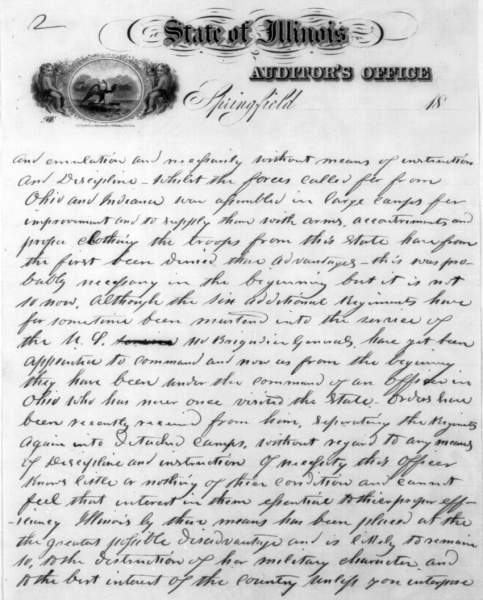 2
State of Illinois
AUDITOR'S OFFICE
Springfield 18
and emulation and necessarily without means of instruction
and Discipline - Whilst the forces called for from
Ohio and Indiana was assembled in large camps for
improvement and to supply them with arms, accoutrements and
proper clothing the troops from this State have from
the first been denied these advantages - this was pro-
bably necessary in the beginning but it is not
so now. Although the six additional Regiments have
for sometime been mustered into the service of
the U. S. no Brigadier Generals, have yet been
appointed to command and now as from the beginning
they have been under the command of an officer in
Ohio who has never once visited the State. Orders have
been recently received from him, separating the Regiments
again into detached camps, without regard to any means
of Discipline and instruction of necessity this officer
knows little or nothing of their condition and cannot
feel that interest in them essential to their proper eff-
-iciency Illinois by these means has been placed at the
the greatest possible disadvantage and is likely to remain
so, to the destruction of her military character, and
to the best interest of the country unless you interpose